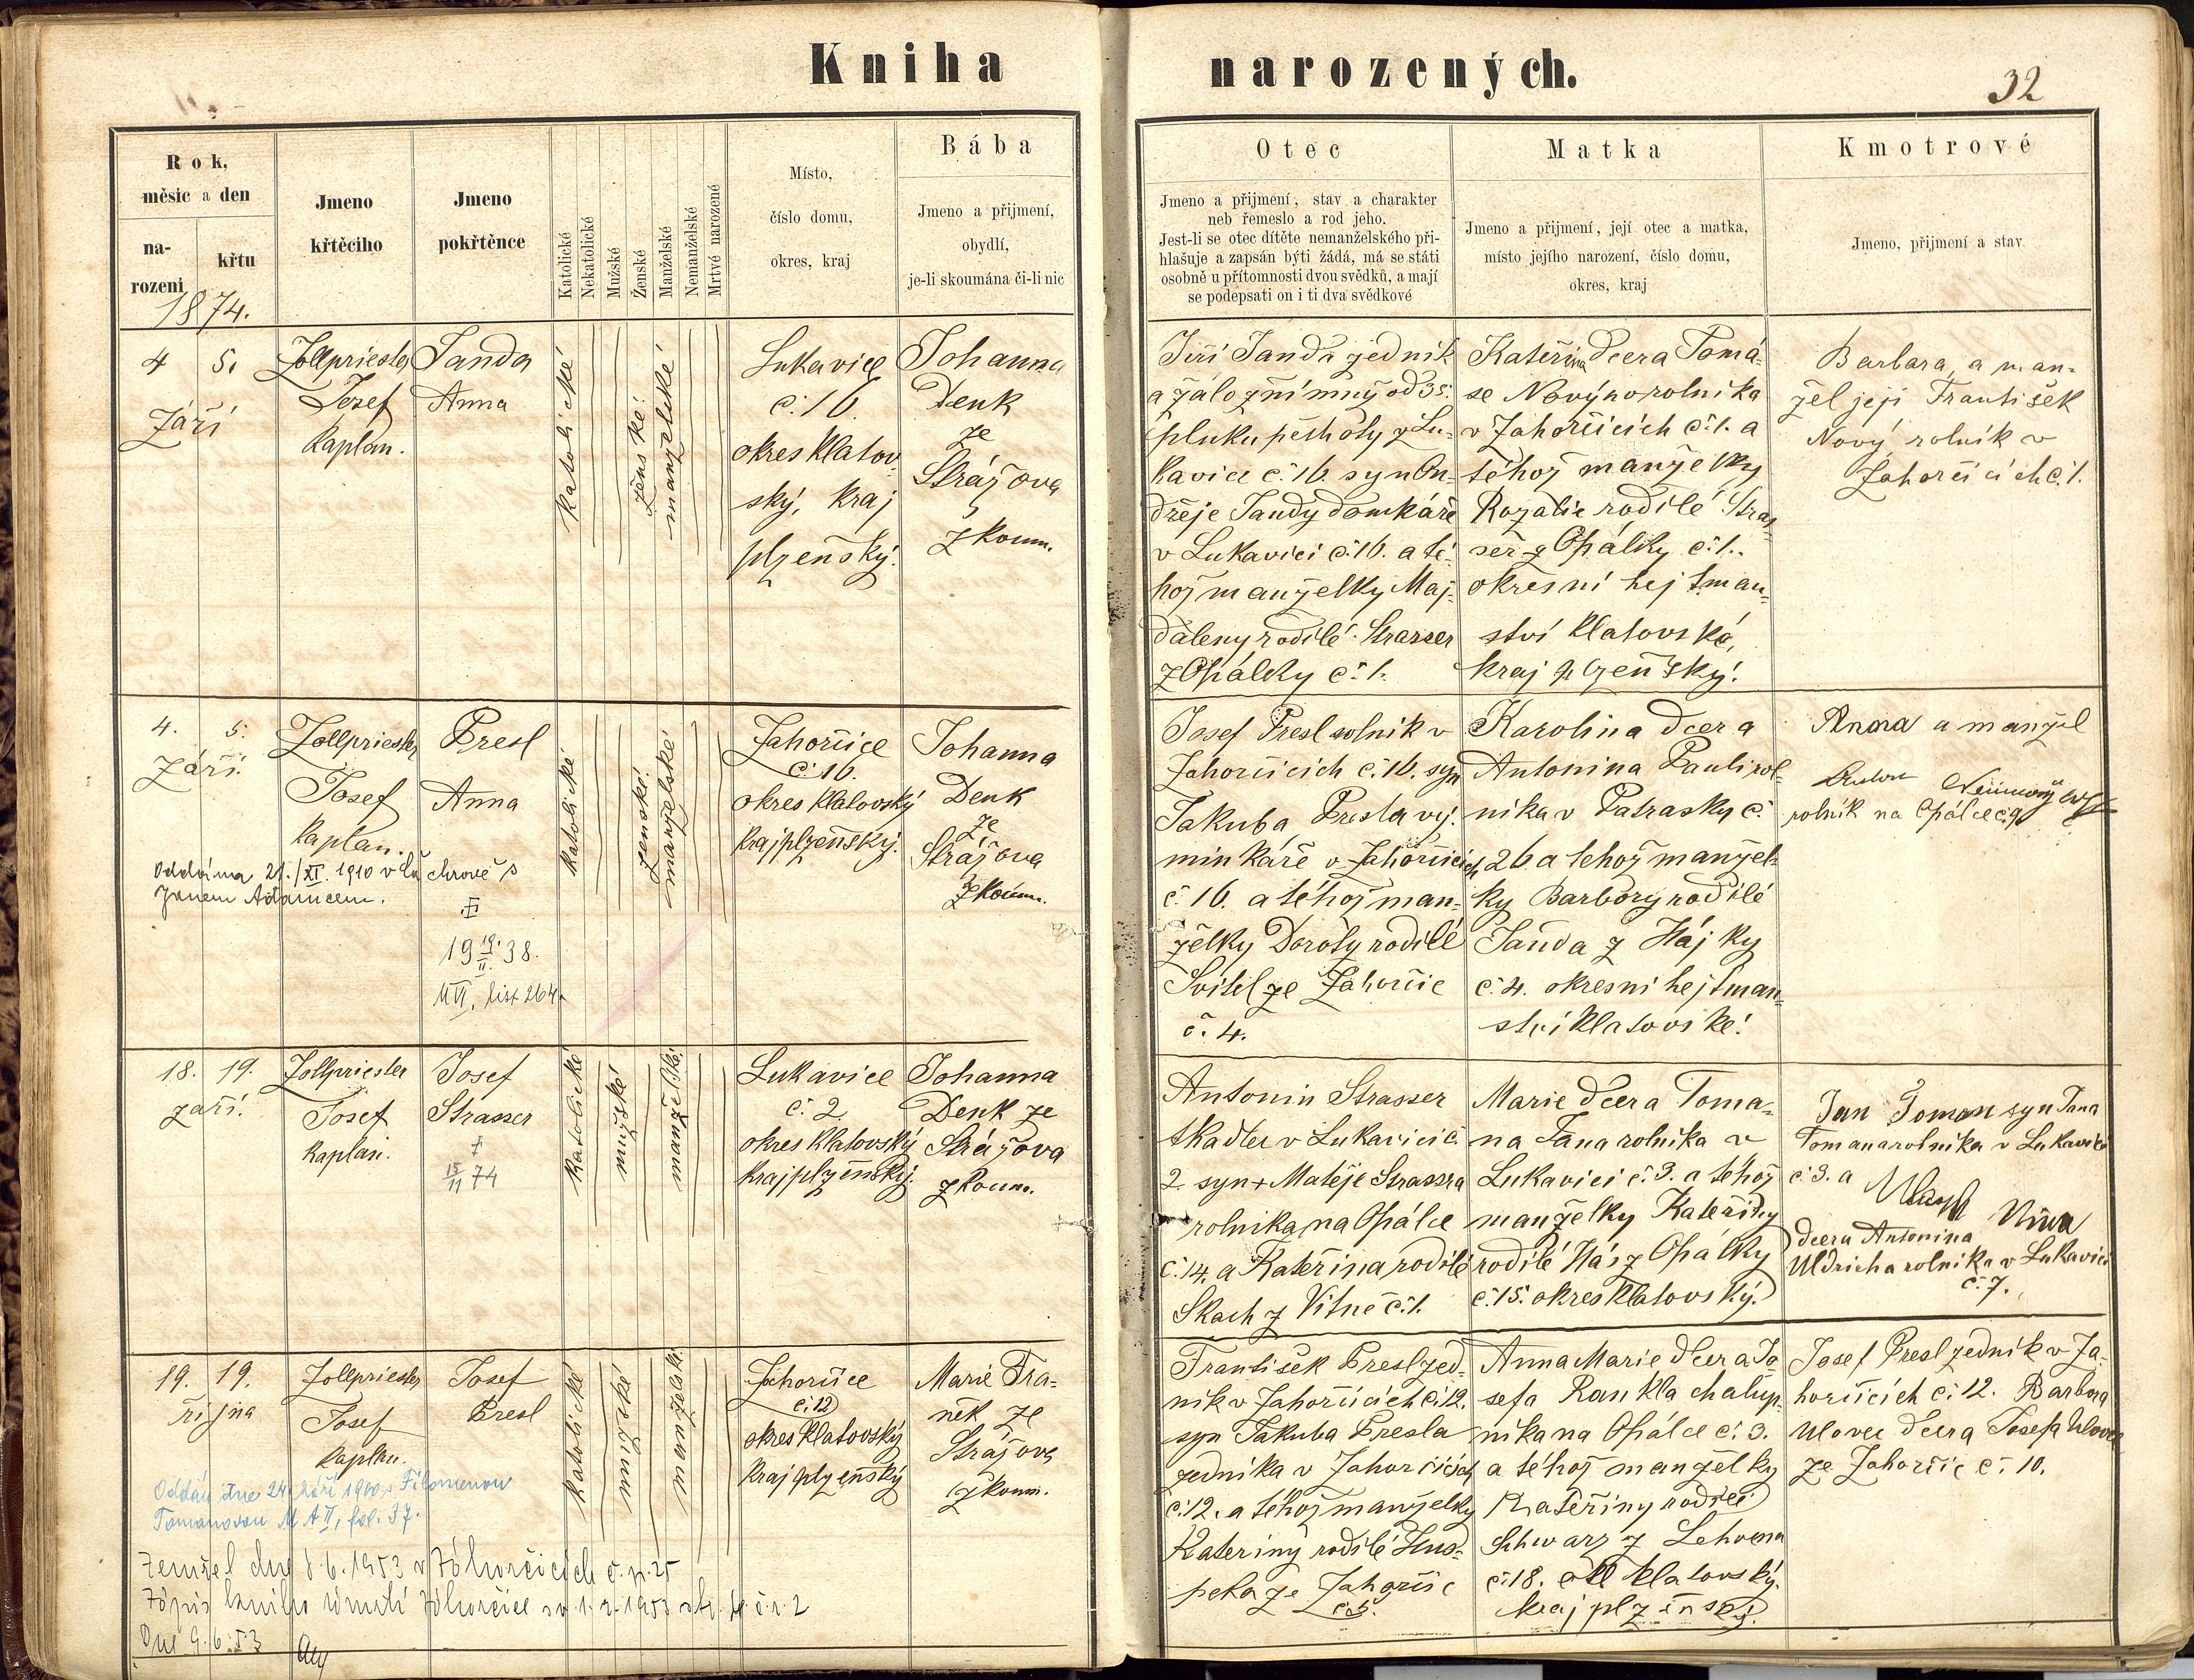 Kniha narozených.
32
Rok,
měsíc a den
na-
rozeni
křtu
Jmeno
křtěciho
Jmeno
pokřtěnce
Katolické
Nekatolické
Mužské
Ženské
Manželské
Nemanželské
Mrtvé narozené
Místo,
číslo domu,
okres, kraj
Bába
Jmeno a přijmení,
obydlí,
je-li skoumána či-li nic
Otec
Jmeno a přijmení, stav a charakter
neb řemeslo a rod jeho.
Jest-li se otec dítěte nemanželského při-
hlašuje a zapsán býti žádá, má se státi
osobně u přítomnosti dvou svědků, a mají
se podepsati on i ti dva svědkové
Matka
Jmeno a přijmení, její otec a matka,
místo jejího narození, číslo domu,
okres, kraj
Kmotrové
Jmeno, přijmení a stav
1874.
4 5.
Září
Zollpriester
Josef
Kaplan.
Janda
Anna
katolické
ženské
manželské
Lukavice
č. 16.
okres klatov
ský, kraj
plzeňský.
Johanna
Denk
ze
Strážova
zkoum.
Jiří Janda zedník
a záložní mný od 35.
pluku pěchoty z Lu-
kavice č. 16. syn On-
dřeje Jandy domkáře
v Lukavici č. 16. a té-
hož manželky Maj-
daleny rodilé Strasser
z Opálky č. 1.
Kateřina dcera Tomá-
se Novýho rolníka
v Zahorčicích č. 1. a
téhož manželky
Rozalie rodilé Stras
ser z Opálky č. 1.
okresní hejtman-
ství klatovské,
kraj plzeňský.
Barbara, a man-
žel jeji František
Nový rolník v
Zahorčicích č. 1.
4. 5.
Září.
Zollpriester
Josef
Kaplan.
Presl
Anna
Oddána 21./XI. 1910 v chrově s
Janem Adamcem.
19 19./II. 38.
U VI, list 264
katolické
ženské
manželské
Zahorčice
č. 16.
okres klatovský
kraj plzeňský.
Johanna
Denk
ze
Strážova
zkoum.
Josef Presl rolník v
Zahorčicích č. 16. syn
Jakuba Presla vý-
minkáře v Zahorčicích
č. 16. a téhož man-
želky Doroty rodilé
Svitel ze Zahorčic
č. 4.
Karolina dcera
Antonina Pauli rol-
níka v Patrasky č.
26 a tehož manžel-
ky Barbory rodilé
Janda z Hájky
č. 4. okresni hejtman-
ství klatovské.
Anna a manžel
rolník na Opálce č. 9
18. 19.
září.
Zollpriester
Josef
Kaplan.
Josef
Strasser
†
15/11 74
katolické
mužské
manželské
Lukavice
č. 2
okres klatovský
kraj plzeňský.
Johanna
Denk ze
Strážova
zkoum.
Antonin Strasser
tkadlec v Lukavici č.
2. syn + Matěje Strassra
rolníka na Opálce
č. 14. a Kateřina rodilé
Skach z Vitné č. 1.
Marie dcera Toma-
na Jana rolníka v
Lukavici č. 3. a tehož
manželky Kateřiny
rodilé Hás z Opálky
č. 15. okres klatovský.
Jan Toman syn Jana
Tomana rolníka v Lukavici
č. 3. a
dcera Antonina
Uldricha rolníka v Lukavici
č. 7.
19. 19.
října
Zollpriester
Josef
Kaplan.
Josef
Presl
Oddán dne 24. září 1900 s Filomenou
Tomanovou M A II, fol. 37.
Zemřel dne 8.6.1953 v Záhorčicích č. p. 25
Zápis kniha úmrtí Záhorčice sv. 1. r. 1953 str. 4 č. ř. 2
Dne 9.6.53
katolické
mužské
manželské
Zahorčice
č. 12
okres klatovský
kraj plzeňský
Marie Fra-
něk ze
Strážova
zkoum.
František Presl zed-
ník v Zahorčicích č. 12.
syn Jakuba Presla
zedníka v Zahorčicích
č. 12. a tehož manželky
Kateriny rodilé Hus-
peka ze Zahorčic
č. 5.
Anna Marie dcera Jo
sefa Rankla chalup-
níka na Opálce č. 3.
a téhož manželky
Kateřiny rodilé
Schwarz z Lehoma
č. 18. okr. klatovský.
kraj plzeňský.
Josef Presl zedník v Za-
horčicích č. 12. Barbora
Ulovec dcera Josefa Ulovec
ze Zahorčic č. 10.